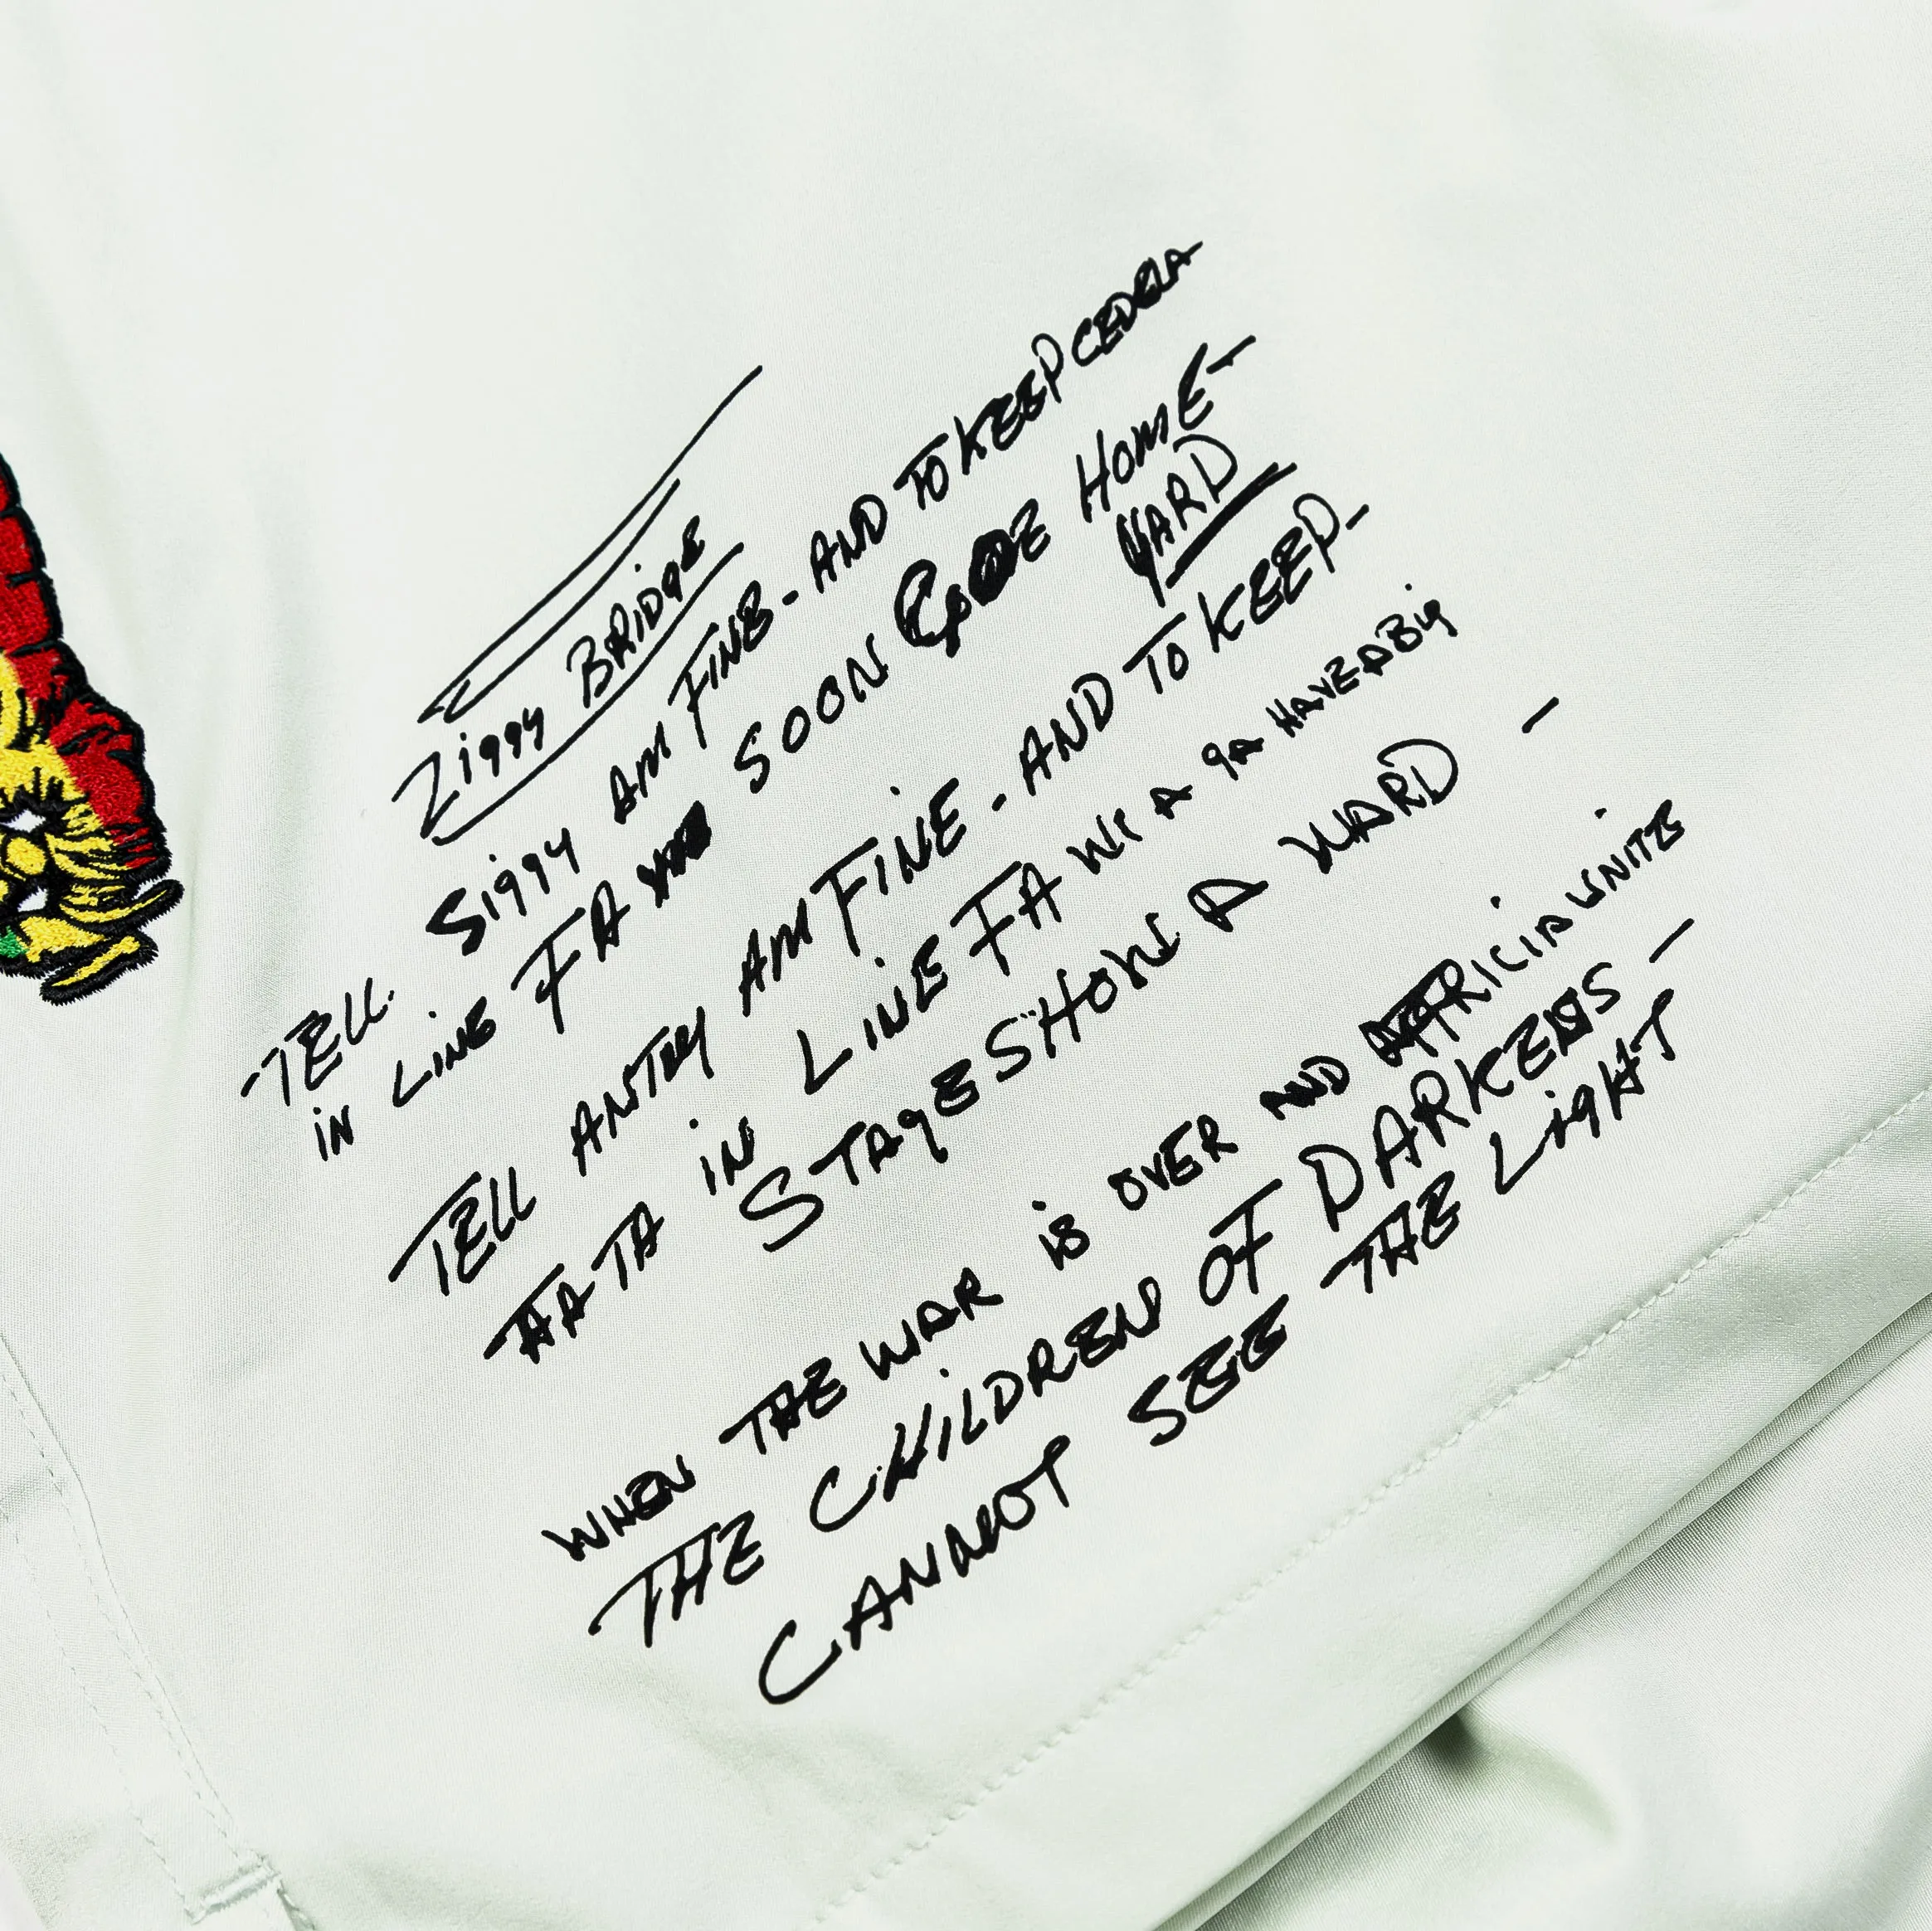 Ziggy BRidgE
TELL Siggy AM FINE - AND TO KEEP CEDELA
iN LINE FA SOON COME HOME -
YARD
TELL ANTRY AM FiNE - AND TO KEEP -
FATA iN LiNE FA WE A ga HAVE A Big
STAgE SHOW A YARD -
WHEN THE WAR is OVER AND AFRICIA UNITE
THE CHiLDREN OF DARKENS -
CANNOT SEE THE LigHT